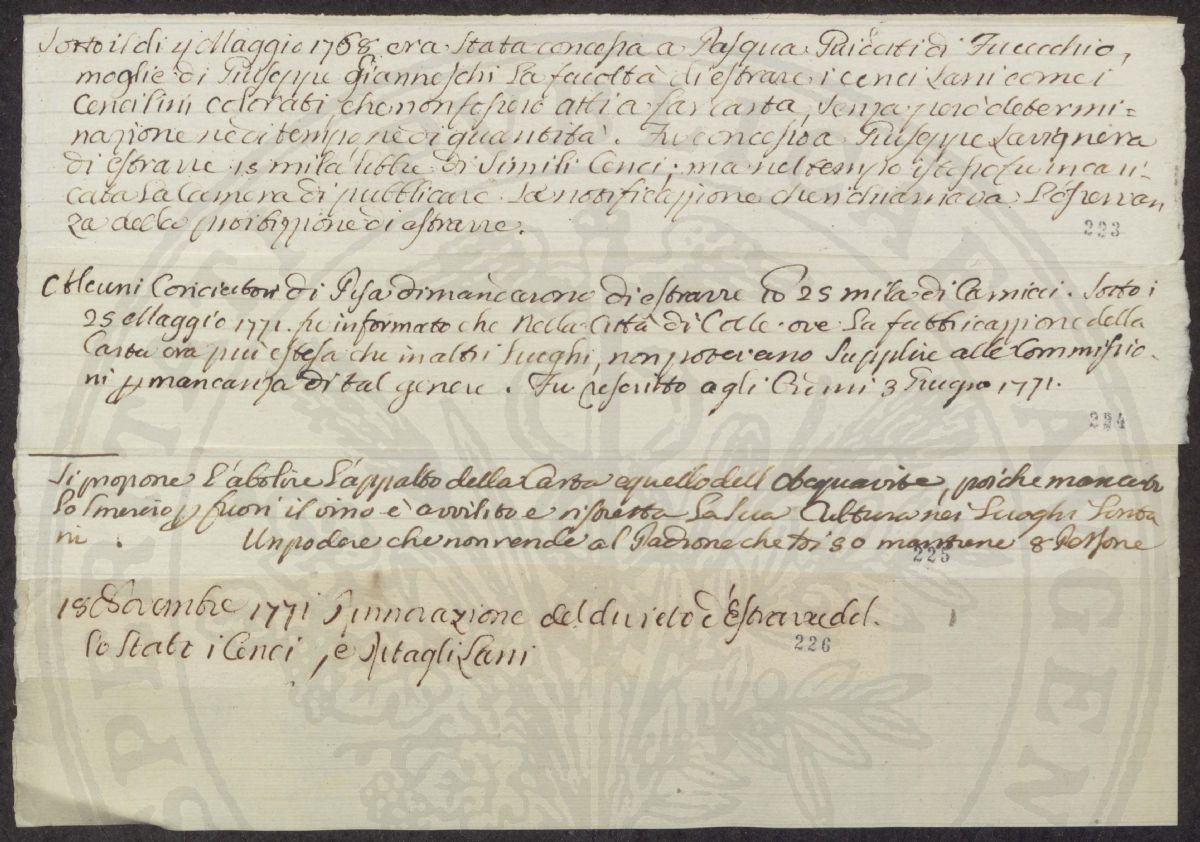 Sotto il di 4 Maggio 1768 era stata concessa a Pasqua di Fucecchio,
moglie di Giuseppe Gianneschi la facoltà di estrarre i cenci lani come i
cencilini colorati che non fossero atti a far carta, senza però determi=
nazione nè di tempo nè di quantità. Fu concesso a Giuseppe Lavignera
di estrarre 15 mila libbre di simili Cenci; ma nel tempo istesso fu incari-
cata la Camera di pubblicare la notificazione che richiamava l'osservan
za della proibizione di estrarre.
223
Alcuni Conciatori di Pisa dimandarono di estrarre 25 mila di Carnicci. Sotto i
25 Maggio 1771. fu informato che nella Città di Colle ove la fabbricazione della
Carta era più estesa che in altri luoghi, non potevano supplire alle Commissio-
ni p mancanza di tal genere. Fu rescritto agli 3 Giugno 1771.
224
Si propone l'abolire l'appalto della Carta e quello dell Acquavite, poiche mancando
lo smercio p fuori il vino è avvilito e ristretta la sua Cultura nei Luoghi Lonta
ni. Un podere che non rende al Padrone che 80 mantiene 8 Persone
225
18 Novembre 1771 Rinnovazione del divieto d'Estrarre del-
lo Stato i Cenci, e Ritagli Lani
226
SPIRITVS